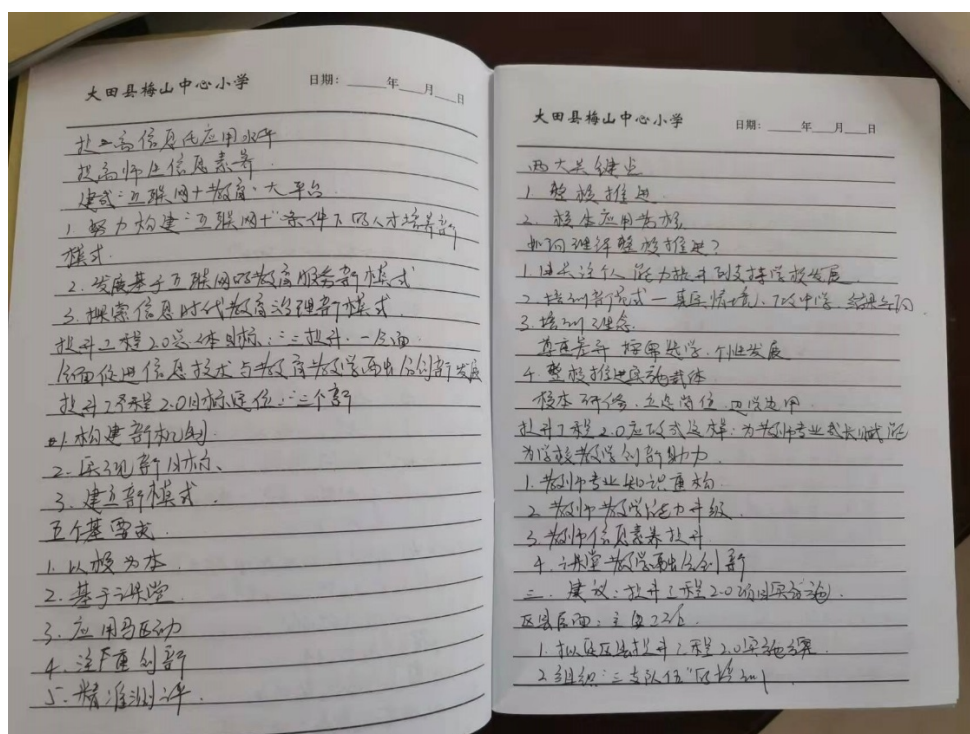 大田县梅山中心小学 日期：____年__月__日
提高信息化应用水平
提高师生信息素养
建成“互联网+教育”大平台
1 努力构建“互联网+”条件下的人才培养新
模式.
2. 发展基于互联网的教育服务新模式
3. 探索信息时代教育治理新模式.
提升工程2.0总体目标：“三提升.一全面
全面促进信息技术与教育教学融合创新发展
提升工程2.0目标定位：“三个新
1.构建新机制.
2. 实现新目标、
3. 建立新模式.
五个基 要求.
1. 以校为本.
2. 基于课堂
3. 应用驱动
4. 注重创新
5. 精准测评.
大田县梅山中心小学 日期：____年__月__日
两大关键点
1 整校推进.
2. 校本应用考核.
如何理解整校推进？
1. 能力提升到支持学校发展.
2 培训新 式—真实情境、 中学、
3. 培训理念.
尊重差异 按需选学.个性发展
4. 整校推进实施载体
校本研修.立足岗位.边学边用
提升工程2.0应 式 样：为教师专业成长赋能
为学校教学创新助力
1. 教师专业知识重构
2 教师教学能力升级.
3. 教师信息素养提升.
4. 课堂教学融合创新
三. 建议：提升工程2.0项目实施.
区县层面：
1. 拟定区县提升工程2.0实施方案.
2 组织“三支队伍” 培训